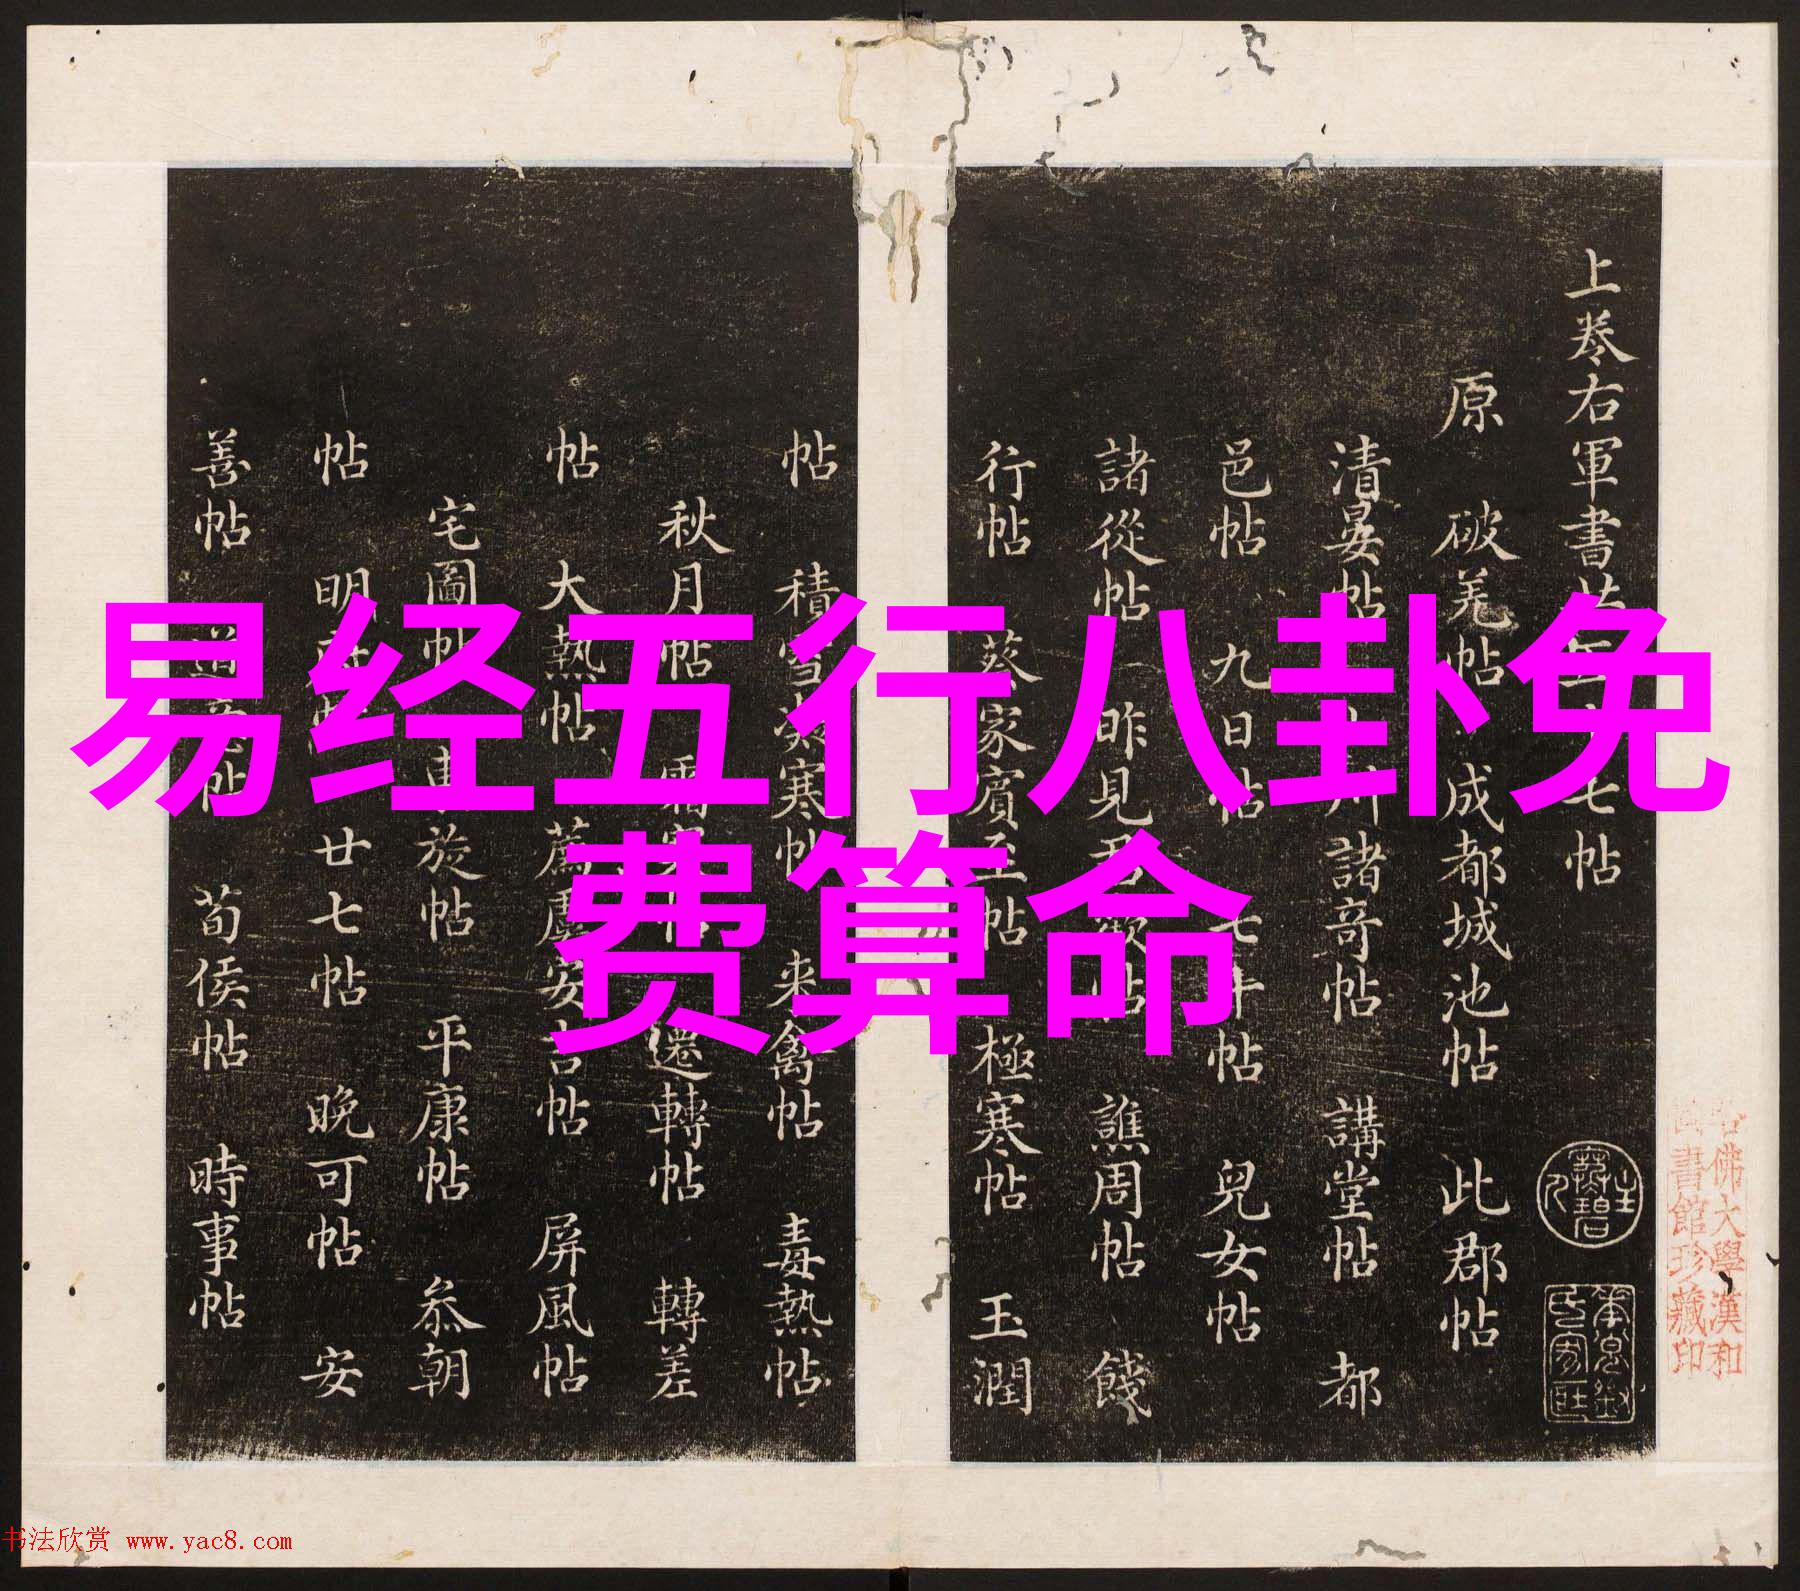 易经五行八卦免
费算命
上卷右軍書
七帖
原 破羌帖 成都城池帖 此郡帖
清晏帖
諸奇帖 講堂帖 都
邑帖 九日帖 七十帖 兒女帖
諸從帖 昨見君 帖 譙周帖 餞
行帖 蔡家賓至帖 極寒帖 玉潤
帖 積雪凝寒帖 来禽帖 毒熱帖
秋月帖 霜寒帖 遷轉帖 轉差
帖 大熱帖 薦虞安吉帖 屏風帖
宅圖帖 旃帖 平康帖 叅朝
帖 明府帖 廿七帖 晚可帖 安
善帖 道意帖 荀侯帖 時事帖
佛大學漢和
書館珍藏印
书法欣赏 www.yac8.com